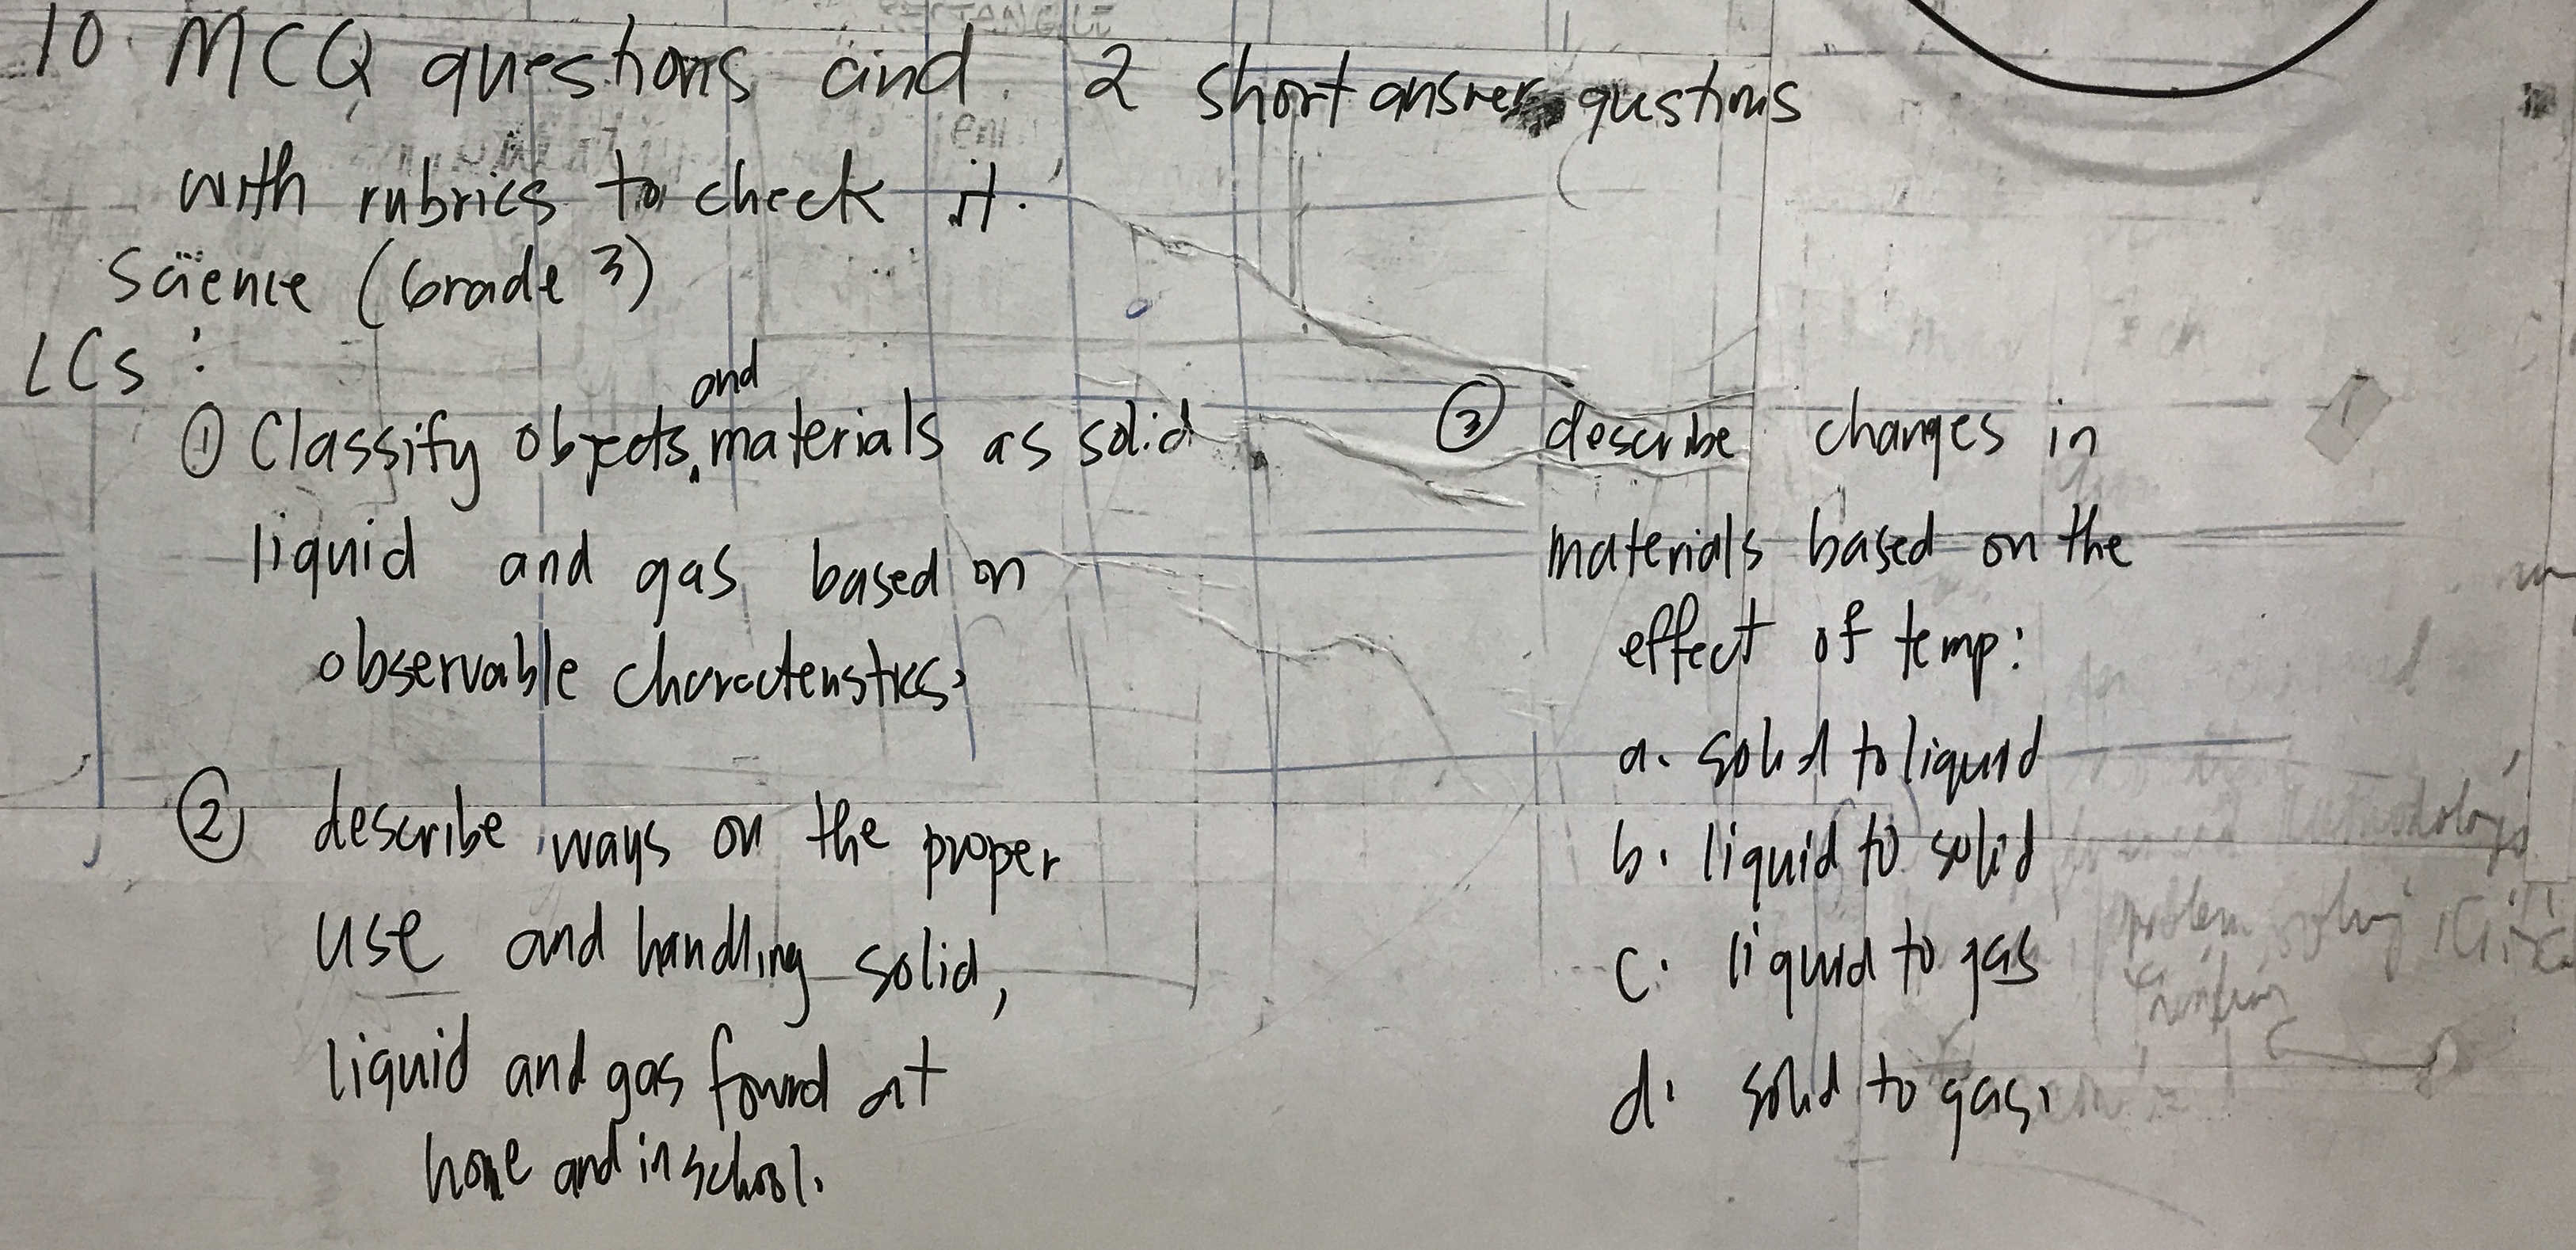 10 MCQ questions and 2 short answer questions
with rubrics to check it.
Science (Grade 3)
LCs:
① Classify objects and materials as solid
liquid and gas based on
observable characteristics.
② describe ways on the proper
use and handling solid,
liquid and gas found at
home and in school.
③ describe changes in
materials based on the
effect of temp:
a. solid to liquid
b. liquid to solid
c. liquid to gas
d. solid to gas.
RECTANGLE
problem solving